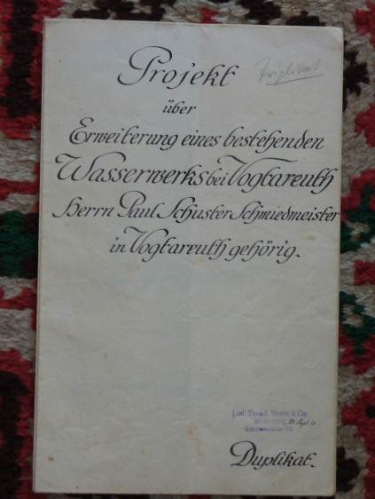 Projekt
über
Erweiterung eines bestehenden
Wasserwerks bei Vogtareuth
Herrn Paul Schuster Schmiedmeister
in Vogtareuth gehörig.
& Co.
Duplikat.